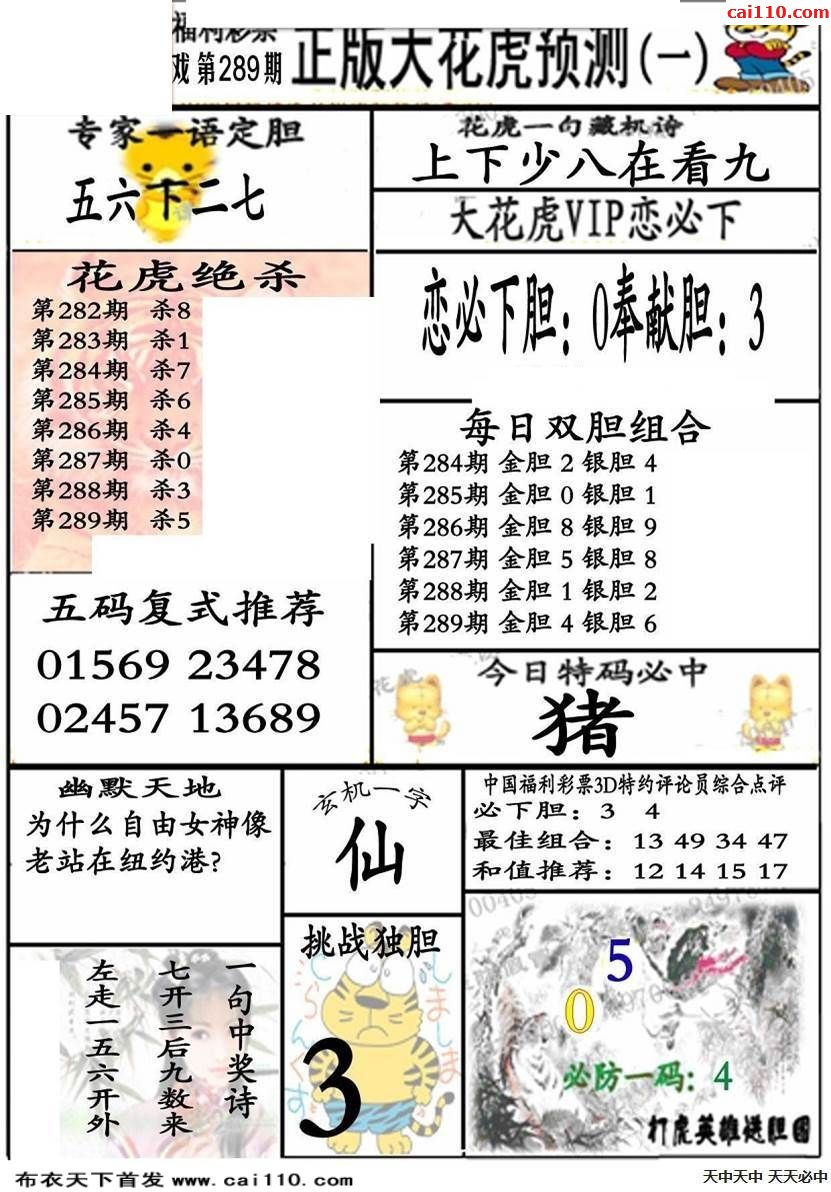 cai110.com
福利彩票
戏 第289期
正版大花虎预测(一)
专家一语定胆
五六下二七
花虎一句藏机诗
上下少八在看九
大花虎VIP恋必下
恋必下胆：0奉献胆：3
花虎绝杀
第282期 杀8
第283期 杀1
第284期 杀7
第285期 杀6
第286期 杀4
第287期 杀0
第288期 杀3
第289期 杀5
每日双胆组合
第284期 金胆 2 银胆 4
第285期 金胆 0 银胆 1
第286期 金胆 8 银胆 9
第287期 金胆 5 银胆 8
第288期 金胆 1 银胆 2
第289期 金胆 4 银胆 6
五码复式推荐
01569 23478
02457 13689
今日特码必中
猪
幽默天地
为什么自由女神像
老站在纽约港?
玄机一字
仙
中国福利彩票3D特约评论员综合点评
必下胆：3 4
最佳组合：13 49 34 47
和值推荐：12 14 15 17
一句中奖诗
七开三后九数来
左走一五六开外
挑战独胆
3
5
0
必防一码：4
打虎英雄送胆图
布衣天下首发 www.cai110.com
天中天中 天天必中